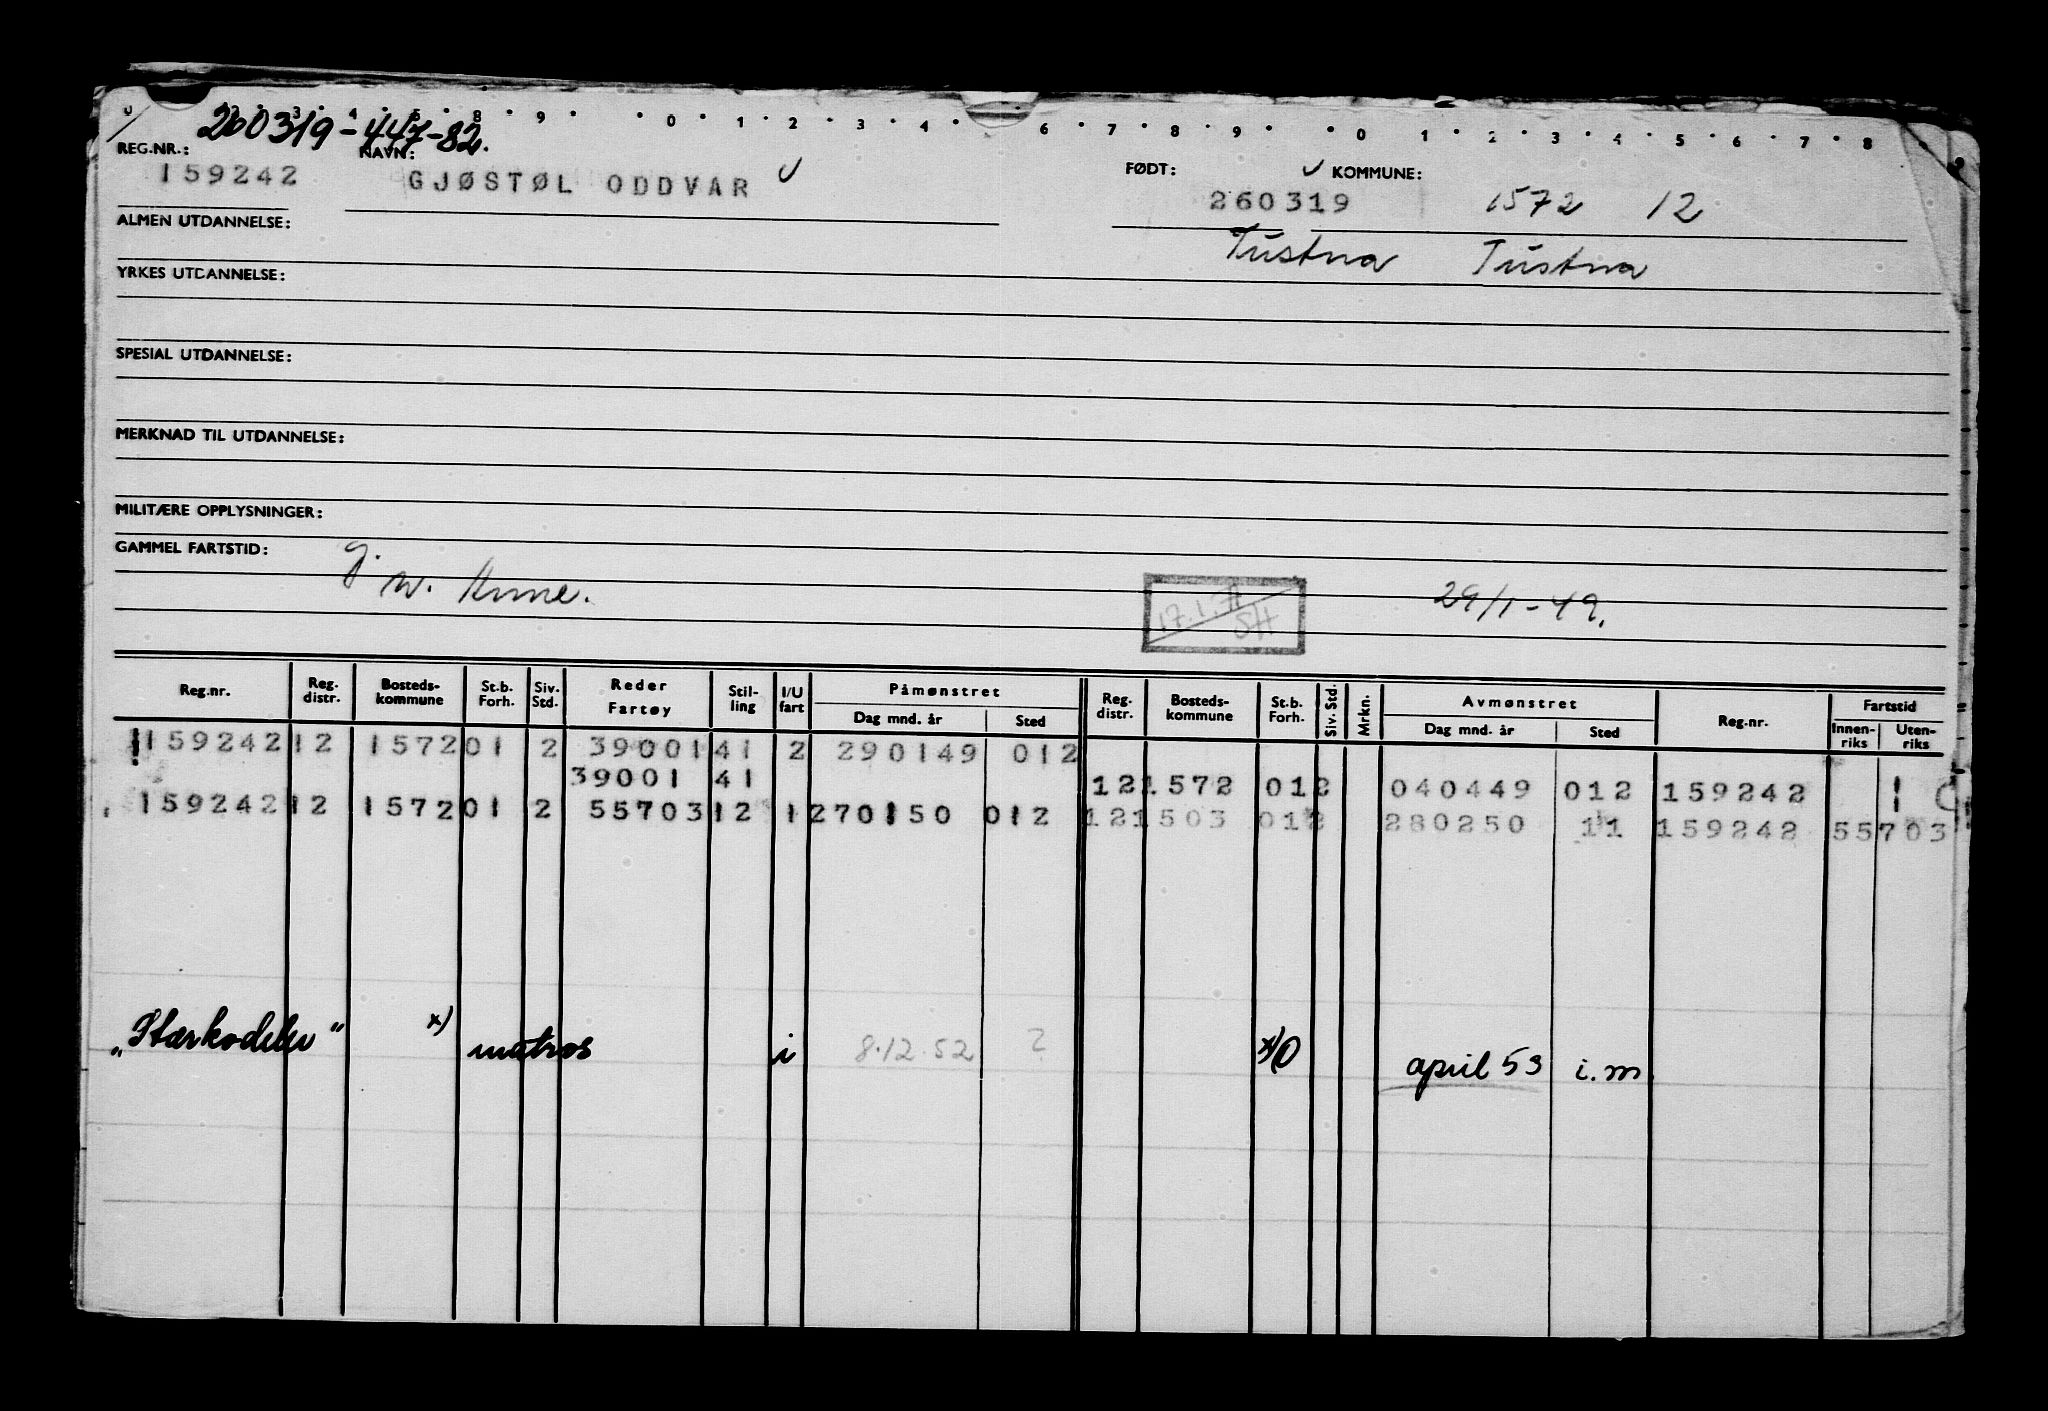 0 2 3 4 5 8 9 0 1 2 3 4 6 7 8 9 0 1 2 3 4 5 6 7 8 9
260319-447-82.
REG.NR.: NAVN: FØDT: KOMMUNE:
159242 GJØSTØL ODDVAR 260319 1572 12
ALMEN UTDANNELSE: Tustna Tustna
YRKES UTDANNELSE:
SPESIAL UTDANNELSE:
MERKNAD TIL UTDANNELSE:
MILITÆRE OPPLYSNINGER:
GAMMEL FARTSTID: g.
29/1-49.
SH
Reg.nr. Reg. distr. Bosteds-kommune St.b. Forh. Siv. Std. Reder Fartøy Stil-ling I/U fart Påmønstret Dag mnd. år Sted Reg. distr. Bosteds-kommune St.b. Forh. Siv. Std. Mrkn. Avmønstret Dag mnd. år Sted Reg.nr. Fartstid Innen-riks Uten-riks
159242 12 1572 01 2 39001 41 2 290149 012
39001 41 12 1572 012 040449 012 159242
159242 12 1572 01 2 55703 12 1 270150 012 12 1503 012 280250 11 159242 55703
x) matros i 8.12.52 ? x) O april 53 i.m